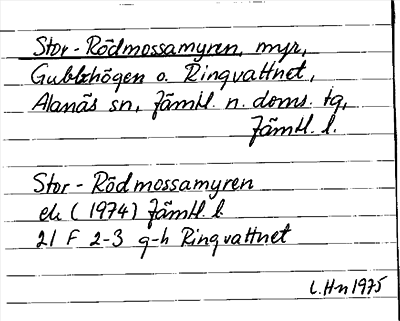 Stor-Rödmossamyren, myr,
Gubbhögen o. Ringvattnet,
Alanäs sn, Jämtl. n. doms. tg,
Jämtl. l.
Stor-Rödmossamyren
ek (1974) Jämtl. l.
21 F 2-3 g-h Ringvattnet
L.Hn 1975